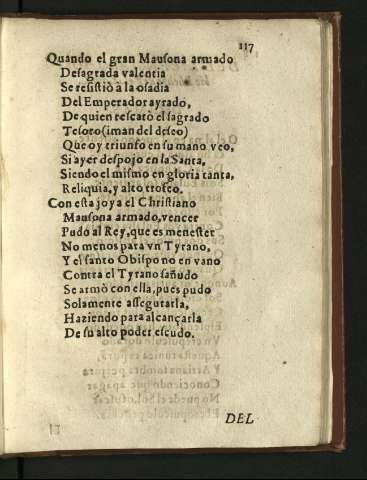 117
Quando el gran Mausona armado
De sagrada valentia
Se resistiò à la osadia
Del Emperador ayrado,
De quien rescatò el sagrado
Tesoro (iman del deseo)
Que oy triunfo en su mano veo,
Si ayer despojo en la Santa,
Siendo el mismo en gloria tanta,
Reliquia, y alto trofeo.
Con esta joya el Christiano
Mausona armado, vencer
Pudo al Rey, que es menester
No menos para vn Tyrano,
Y el santo Obispo no en vano
Contra el Tyrano sañudo
Se armò con ella, pues pudo
Solamente assegurarla,
Haziendo para alcançarla
De su alto poder escudo.
DEL